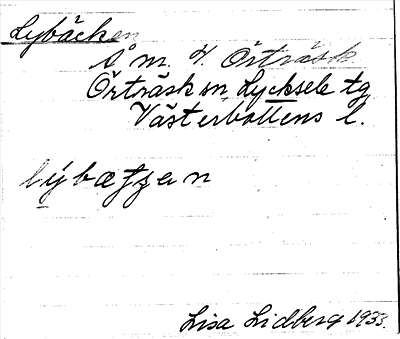 Lybäcken
Å m. t. Örträsk
Örträsk sn, Lycksele tg
Västerbottens l.
lýbætʒen
Lisa Lidberg 1933.